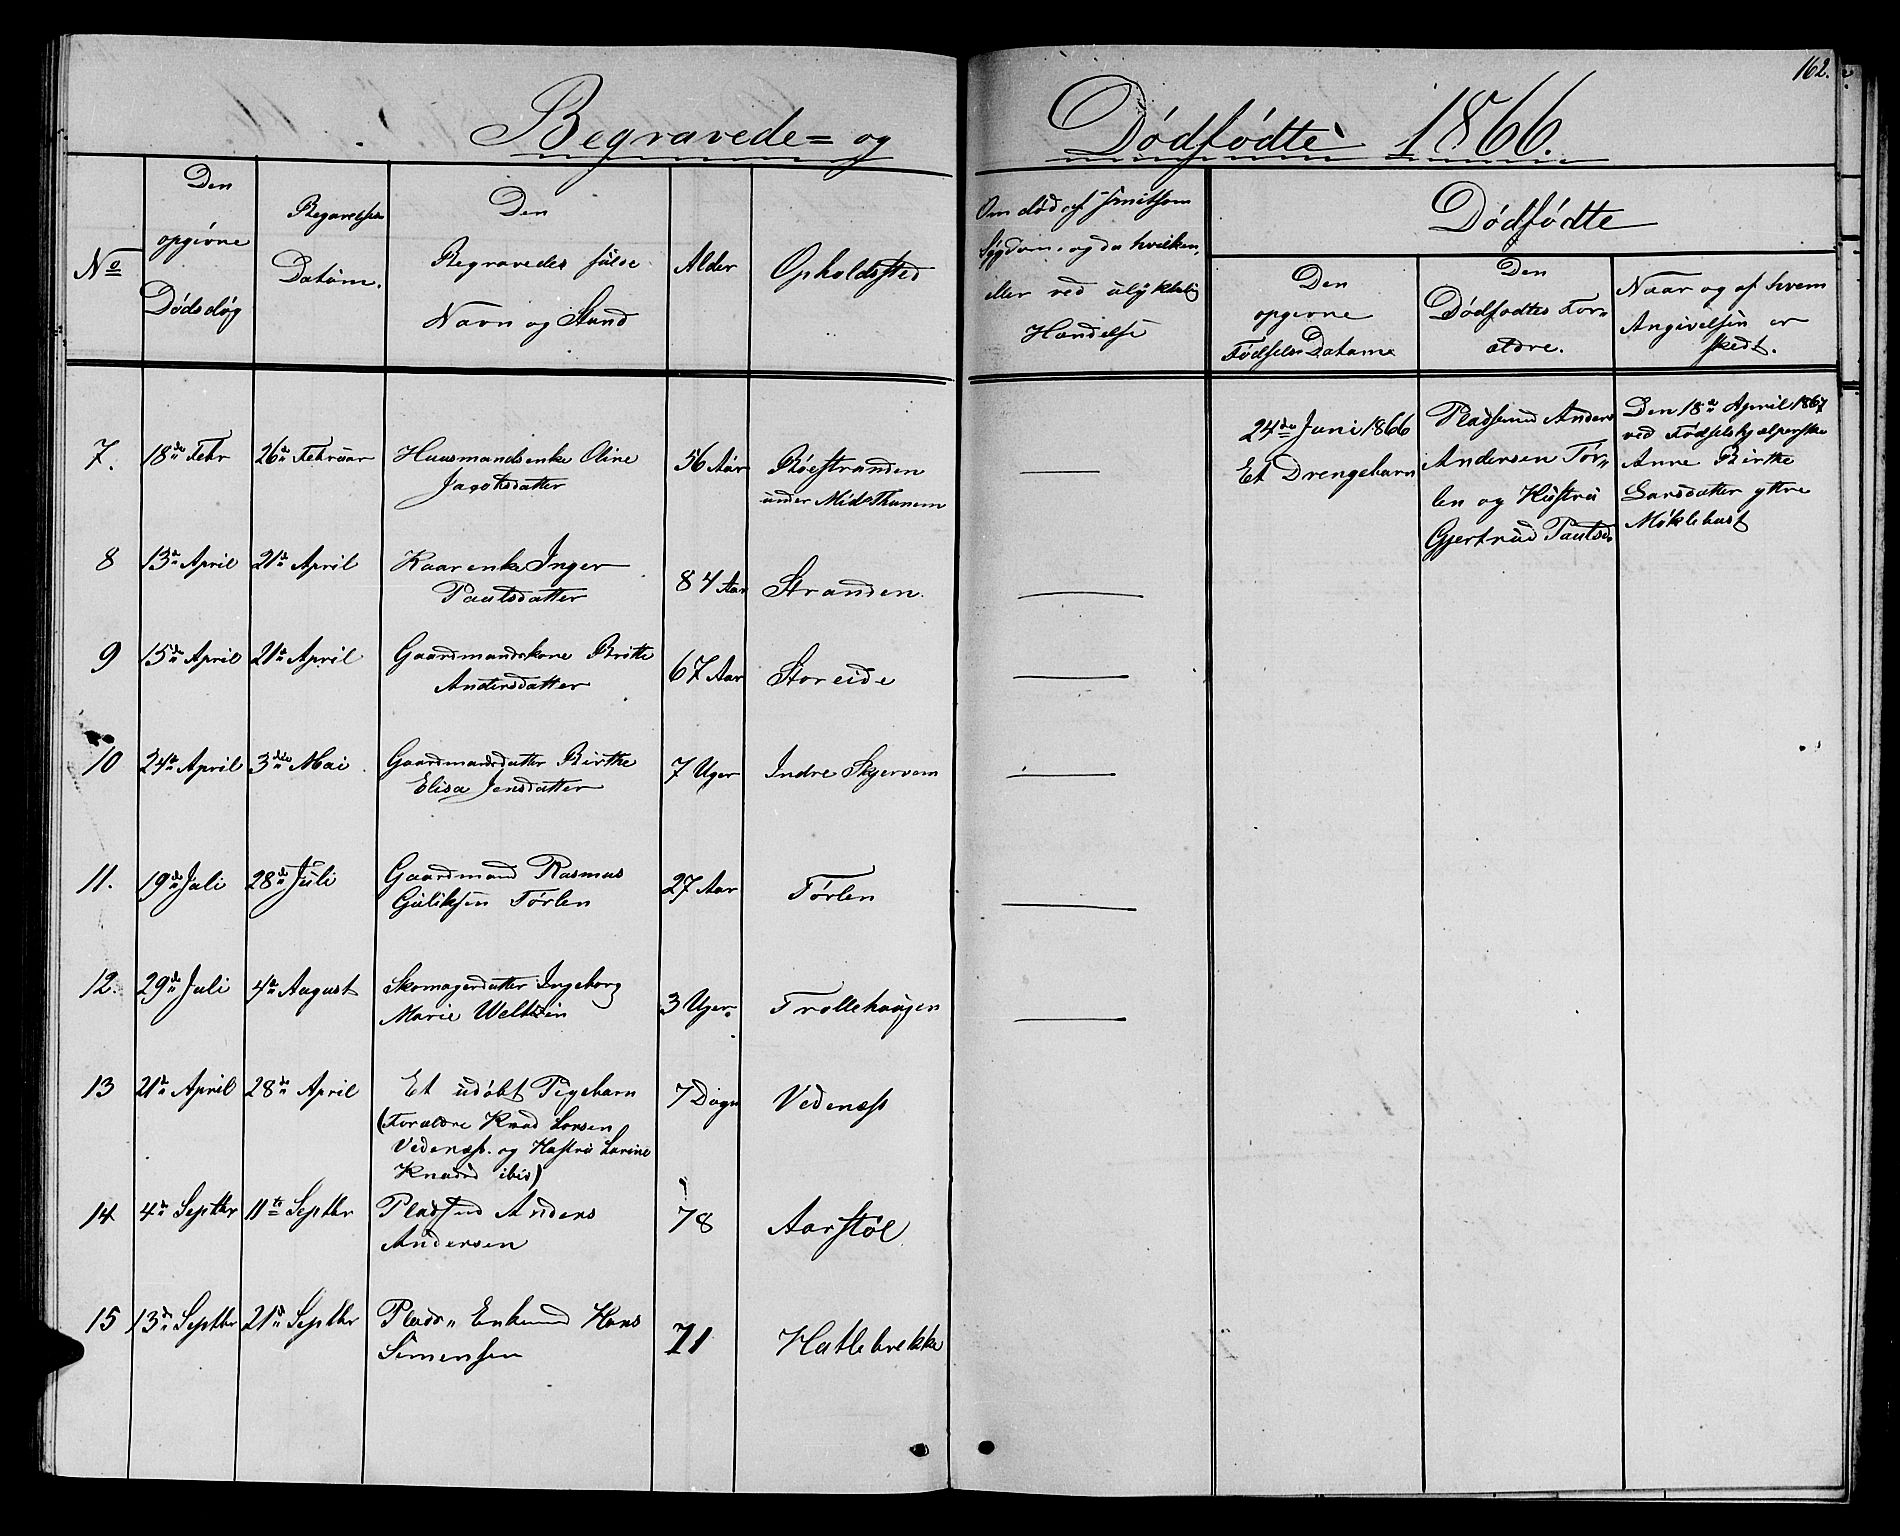 162.
Begravede= og Dødfødte 1866.
No
Den opgivne Dødsdøg
Begravelses Datum.
Den Begravedes fulde Navn og Stand
Alder
Opholdssted
Om død af smitsom Sygdom, og da hvilken, eller ved ulykkelig Hændelse
Dødfødte
Den opgivne Fødsels Datum
Den Dødfødtes For„ ældre.
Naar og af hvem Angivelsen er skedt.
7. 18de Febr 26de Februar Huusmandsenke Oline 56 Aar Røestranden
Jacobsdatter under Midthunem
8 13de April 21de April Kaarenke Inger 84 Aar Stranden.
Paulsdatter
9 15de April 21de April Gaardmandskone Britte 67 Aar Storeide
Andersdatter
10 24de April 3die Mai Gaardmandsdatter Birthe 7 Uger Indre Skjervem
Elisa Jensdatter
11. 19de Juli 28de Juli Gaardmand Rasmus 27 Aar Førlen
Guliksen Førlen
12. 29de Juli 4de August Skomagerdatter Ingeborg 3 Uger. Trollehaugen
Marie
13 21de April 28de April Et udøbt Pigebarn 7 Døgn Vedenæss
(Forældre Knud Larsen
Vedenæss. og Hustru Larine
Knudsd ibid)
14 4de Septbr 11te Septbr Pladsmd Anders 78 Aarstøl
Andersen
15 13de Septbr 21de Septbr Plads„ Enkemd Hans 71 Hatlebrekke
Simensen
24de Juni 1866
Et Drengebarn
Pladsmd Anders
Andersen Før„
len og Hustru
Gjertrud Paulsd.
Den 18de April 1867
ved Fødselshjælperske
Anne Birthe
Larsdatter yttre
Myklebust